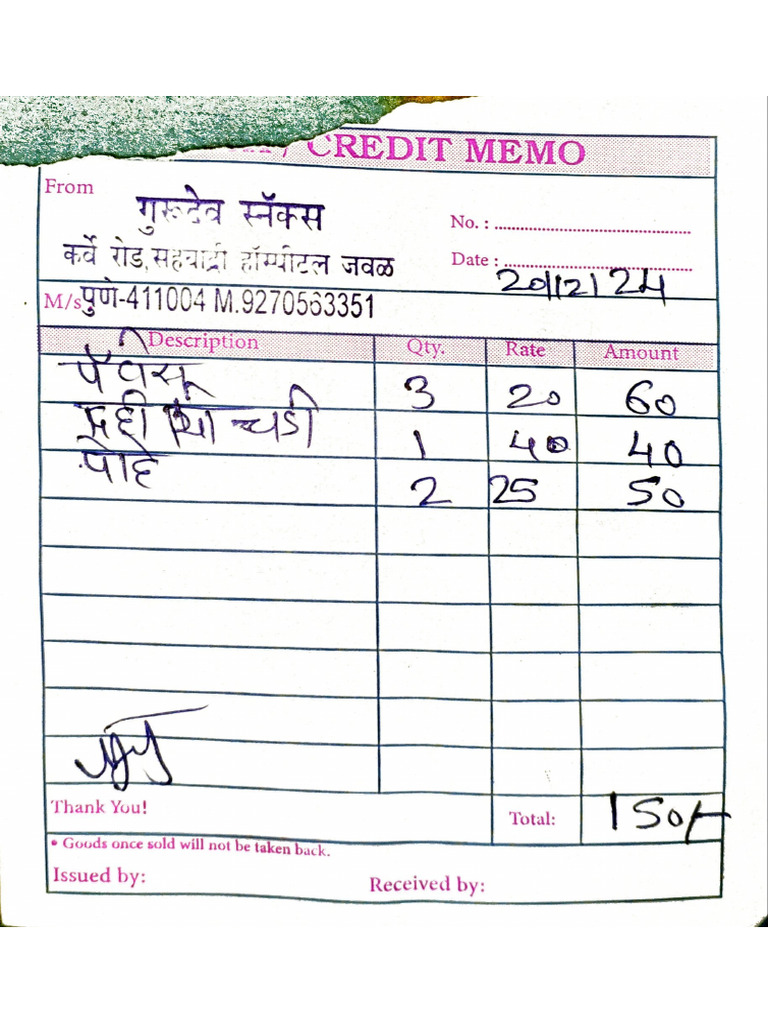 CREDIT MEMO
From
गुरूदेव स्नॅक्स
No. :
कर्वे रोड, सहयाद्री हॉस्पीटल जवळ
Date : 20/12/24
M/s पुणे-411004 M.9270563351
Description Qty. Rate Amount
3 20 60
दही 1 40 40
पोहे 2 25 50
Thank You! Total: 150/-
• Goods once sold will not be taken back.
Issued by: Received by: